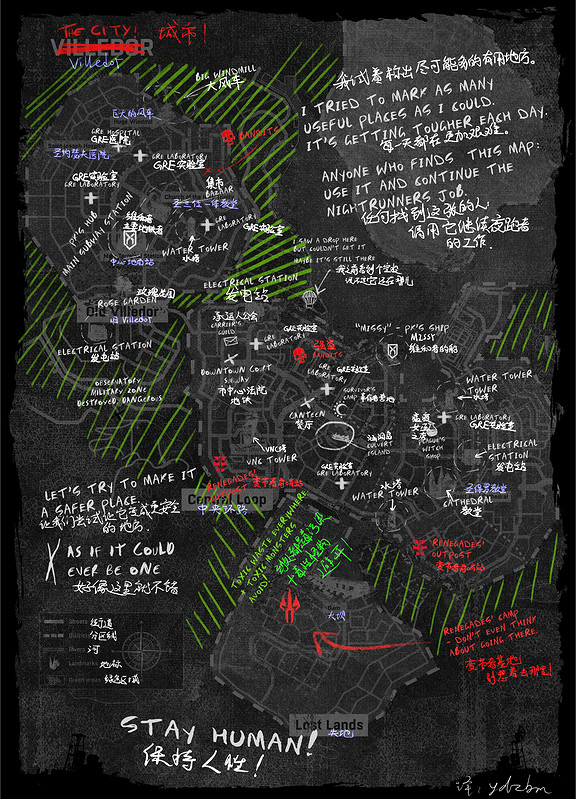 THE CITY! 城市!
VILLEDOR
Villedor
BIG WINDMILL
大风车
巨大的风车
BANDITS
GRE HOSPITAL
GRE医院
圣约瑟夫医院
GRE LABORATORY
GRE实验室
GRE实验室
GRE LABORATORY
集市
BAZAAR
PK'S HUB
MAIN SUBWAY STATION
GRE LABORATORY
GRE实验室
WATER TOWER
水塔
中心地铁站
我试着标出尽可能多的有用地方。
I TRIED TO MARK AS MANY
USEFUL PLACES AS I COULD.
IT'S GETTING TOUGHER EACH DAY.
每一天都在更加艰难。
ANYONE WHO FINDS THIS MAP:
USE IT AND CONTINUE THE
NIGHTRUNNERS JOB.
任何找到这张的人:
请用它继续夜跑者
的工作.
I SAW A DROP HERE
BUT COULDN'T GET IT
MAYBE IT'S STILL THERE
ELECTRICAL STATION
发电站
玫瑰花园
ROSE GARDEN
Old Villedor
旧 Villedor
ELECTRICAL STATION
发电站
OBSERVATORY
MILITARY ZONE
DESTROYED, DANGEROUS
承运人公会
CARRIER'S
GUILD
GRE实验室
GRE
LABORATORY
强盗
BANDITS
"MISSY" - PK'S SHIP
MISSY
维和者的船
DOWNTOWN COURT
SUBWAY
市中心法院
地铁
GRE
LABORATORY
GRE实验室
SURVIVOR'S
CAMP 幸存者营地
CANTEEN
餐厅
WATER TOWER
TOWER
水塔
GRE LABORATORY
GRE实验室
PLAGUE'S
WITCH
SHOP
ELECTRICAL
STATION
发电站
VNC塔
VNC TOWER
涵洞岛
CULVERT
ISLAND
GRE实验室
GRE
LABORATORY
水塔
WATER TOWER
圣保罗教堂
CATHEDRAL
教堂
RENEGADES'
Central Loop
中央环路
RENEGADES'
OUTPOST
变节者前哨站
LET'S TRY TO MAKE IT
A SAFER PLACE.
让我们尝试让它变成更安全
的地方.
AS IF IT COULD
EVER BE ONE
好像这里就不错
TOXIC WASTE EVERYWHERE
+ TOXIC MONSTERS
AVOID!
Streets 街道
District 分区线
Rivers 河
Landmarks 地标
Green areas 绿色区域
大坝
RENEGADES' CAMP
- DON'T EVEN THINK
ABOUT GOING THERE.
变节者营地!
别想着去那里!
Lost Lands
失地
STAY HUMAN!
保持人性!
译: ydzbm